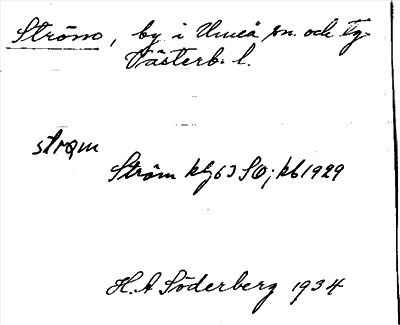 Ström, by i Umeå sn. och tg.
Västerb. l.
strøm
Ström kg 63 SO; kb 1929
H.A Söderberg 1934